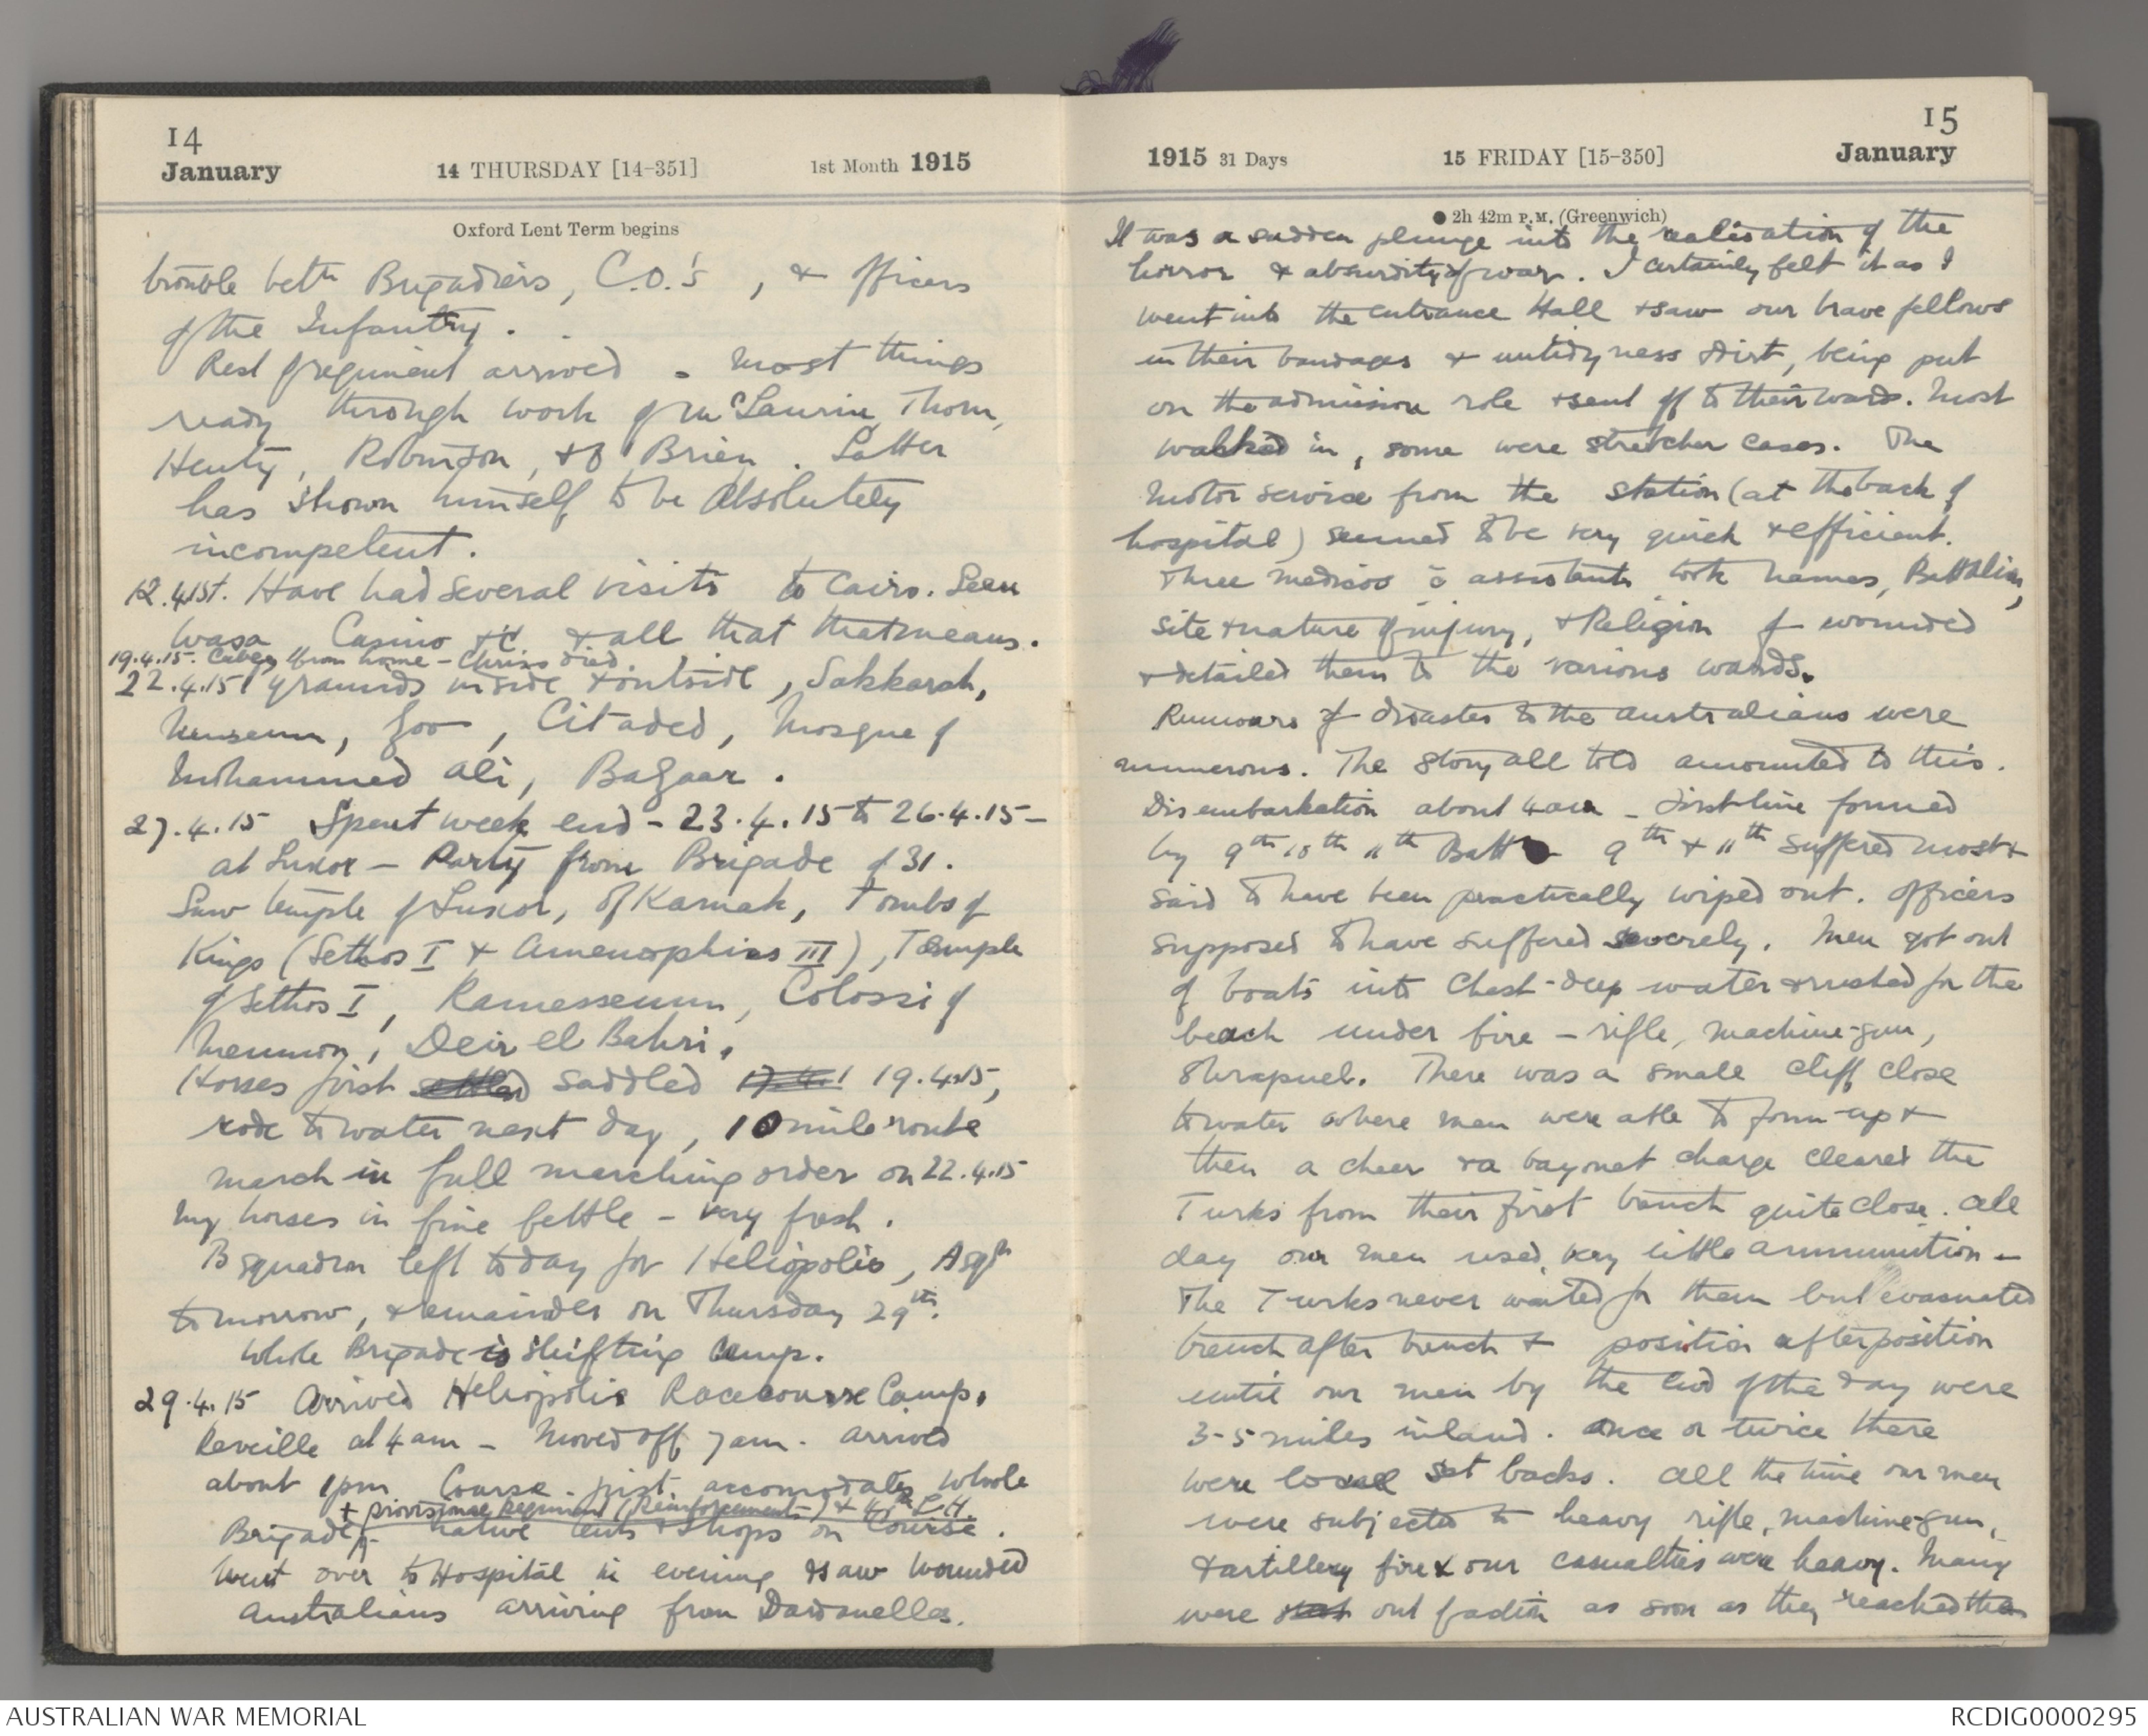 14
January
14 THURSDAY [14-351]
1st Month 1915
Oxford Lent Term begins
trouble betn Brigadiers, C.O.'s, & Officers
of the Infantry.
Rest of regiment arrived - most things
ready through work of McLaurin, Thom,
Henty, Robinson, & O'Brien. Latter
has shown himself to be absolutely
incompetent.
12.4.15. Have had several visits to Cairo. Seen
Wasa, Casino &c & all that that means.
19.4.15. Cable from home - Chriss died.
22.4.15 Pyramids inside & outside, Sakkarah,
Museum, Zoo, Citadel, Mosque of
Mohammed Ali, Bazaar.
27.4.15 Spent week end - 23.4.15 to 26.4.15 -
at Luxor - Party from Brigade of 31.
Saw temple of Luxor, of Karnak, Tombs of
Kings (Sethos I & Amenophis III), Temple
of Sethos I, Ramesseum, Colossi of
Memnon, Deir el Bahri.
Horses first settled saddled 17.4.1 19.4.15,
rode to water next day, 10 mile route
march in full marching order on 22.4.15
My horses in fine fettle - very fresh.
B squadron left today for Heliopolis, A sqn
tomorrow, & remainder on Thursday 29th.
Whole Brigade is shifting Camp.
29.4.15 Arrived Heliopolis Racecourse Camp.
Reveille at 4 am - Moved off 7 am. Arrived
about 1 pm Course just accomodates whole
+ provisional Regiment (Reinforcements) & 4th L.H.
Brigade, native tents & shops on Course.
Went over to Hospital in evening & saw wounded
Australians arriving from Dardanelles.
15
January
1915 31 Days
15 FRIDAY [15-350]
● 2h 42m P.M. (Greenwich)
It was a sudden plunge into the realisation of the
horror & absurdity of war. I certainly felt it as I
went into the entrance Hall & saw our brave fellows
in their bandages & untidyness & dirt, being put
on the admission role & sent off to their wards. Most
walked in, some were stretcher cases. The
motor service from the station (at the back of
hospital) seemed to be very quick & efficient.
Three medicos c̄ assistants took names, Battalion,
site & nature of injury, & Religion of wounded
& detailed them to the various wards.
Rumours of disaster to the Australians were
numerous. The story all told amounted to this.
Disembarkation about 4 am - first line formed
by 9th 10th 11th Battn 9th & 11th suffered most &
said to have been practically wiped out. Officers
supposed to have suffered severely. Men got out
of boats into chest-deep water & rushed for the
beach under fire - rifle, machine-gun,
shrapnel. There was a small cliff close
to water where men were able to form-up &
then a cheer & a bayonet charge cleared the
Turks from their first trench quite close. All
day our men used very little ammunition -
The Turks never waited for them but evacuated
trench after trench & position after position
until our men by the end of the day were
3-5 miles inland. Once or twice there
were local set backs. All the time our men
were subjected to heavy rifle, machine-gun,
& artillery fire & our casualties were heavy. Many
were out of action as soon as they reached the
AUSTRALIAN WAR MEMORIAL
RCDIG0000295